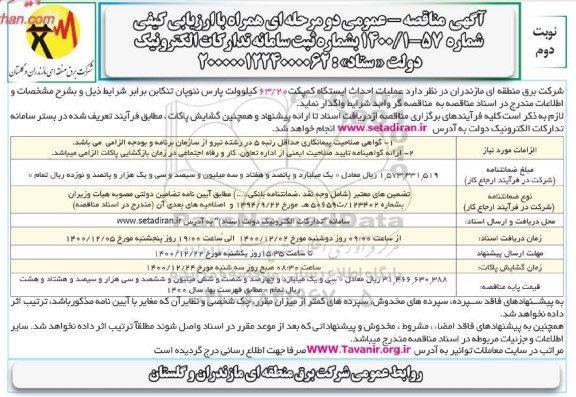 آگهی مناقصه - عمومی دو مرحله ای همراه با ارزیابی کیفی
شماره ۵۷-۱۴۰۰/۱ بشماره ثبت سامانه تدارکات الکترونیک
دولت «ستاد» : ۲۰۰۰۰۰۱۲۲۴۰۰۰۰۶۲
نوبت
دوم
شرکت برق منطقه ای مازندران و گلستان
شرکت برق منطقه ای مازندران در نظر دارد عملیات احداث ایستگاه کمپکت ۶۳/۲۰ کیلوولت پارس نئوپان تنکابن برابر شرایط ذیل و بشرح مشخصات و
اطلاعات مندرج در اسناد مناقصه به مناقصه گر واجد شرایط واگذار نماید.
لازم به ذکر است کلیه فرآیندهای برگزاری مناقصه از دریافت اسناد تا ارائه پیشنهاد و همچنین گشایش پاکات ، مطابق فرآیند تعریف شده در بستر سامانه
تدارکات الکترونیک دولت به آدرس www.setadiran.ir انجام خواهد شد.
الزامات مورد نیاز
۱- گواهی صلاحیت پیمانکاری حداقل رتبه ۵ در رشته نیرو از سازمان برنامه و بودجه الزامی می باشد.
۲- ارائه گواهینامه تایید صلاحیت ایمنی از اداره تعاون، کار و رفاه اجتماعی در زمان بازگشایی پاکات الزامی میباشد.
مبلغ ضمانتنامه
(شرکت در فرآیند ارجاع کار)
۱,۵۷۳,۳۳۱,۵۱۹ ریال معادل « یک میلیارد و پانصد و هفتاد و سه میلیون و سیصد و سی و یک هزار و پانصد و نوزده ریال تمام »
نوع ضمانتنامه
(شرکت در فرآیند ارجاع کار)
تضمین های معتبر (شامل وجه نقد، ضمانتنامه بانکی،...) مطابق آیین نامه تضامین دولتی مصوبه هیات وزیران
بشماره ۱۲۳۴۰۲/ت۵۰۶۵۹ هـ مورخ ۱۳۹۴/۹/۲۲ و اصلاحیه های بعدی آن (مندرج در اسناد مناقصه)
محل دریافت و ارسال اسناد:
سامانه "تدارکات الکترونیک دولت (ستاد)" به آدرس www.setadiran.ir
زمان دریافت اسناد:
از ساعت ۰۹:۰۰ روز دوشنبه مورخ ۱۴۰۰/۱۲/۰۲ الی ساعت ۱۹:۰۰ روز پنجشنبه مورخ ۱۴۰۰/۱۲/۰۵
مهلت ارسال پیشنهاد
تا ساعت ۱۵:۳۵ روز یکشنبه مورخ ۱۴۰۰/۱۲/۲۲
زمان گشایش پاکات:
ساعت ۰۸:۳۰ صبح روز سه شنبه مورخ ۱۴۰۰/۱۲/۲۴
قیمت پایه مناقصه:
۳۱,۴۶۶,۶۳۰,۳۸۸ ریال معادل « سی و یک میلیارد و چهارصد و شصت و شش میلیون و ششصد و سی هزار و سیصد و هشتاد و هشت
ریال تمام » مطابق فهرست بها، سال ۱۴۰۰
به پیشنهادهای فاقد سپرده، سپرده های مخدوش، سپرده های کمتر از میزان مقرر، چک شخصی و نظایر آن که مغایر با آیین نامه مذکور باشد، ترتیب اثر
داده نخواهد شد.
همچنین به پیشنهادهای فاقد امضاء ، مشروط ، مخدوش و پیشنهاداتی که بعد از موعد مقرر در اسناد واصل شوند مطلقاً ترتیب اثر داده نخواهد شد. سایر
اطلاعات و جزئیات مربوطه در اسناد مناقصه مندرج میباشد.
مراتب در سایت معاملات توانیر به آدرس www.Tavanir.org.ir صرفا جهت اطلاع رسانی درج گردیده است
روابط عمومی شرکت برق منطقه ای مازندران و گلستان